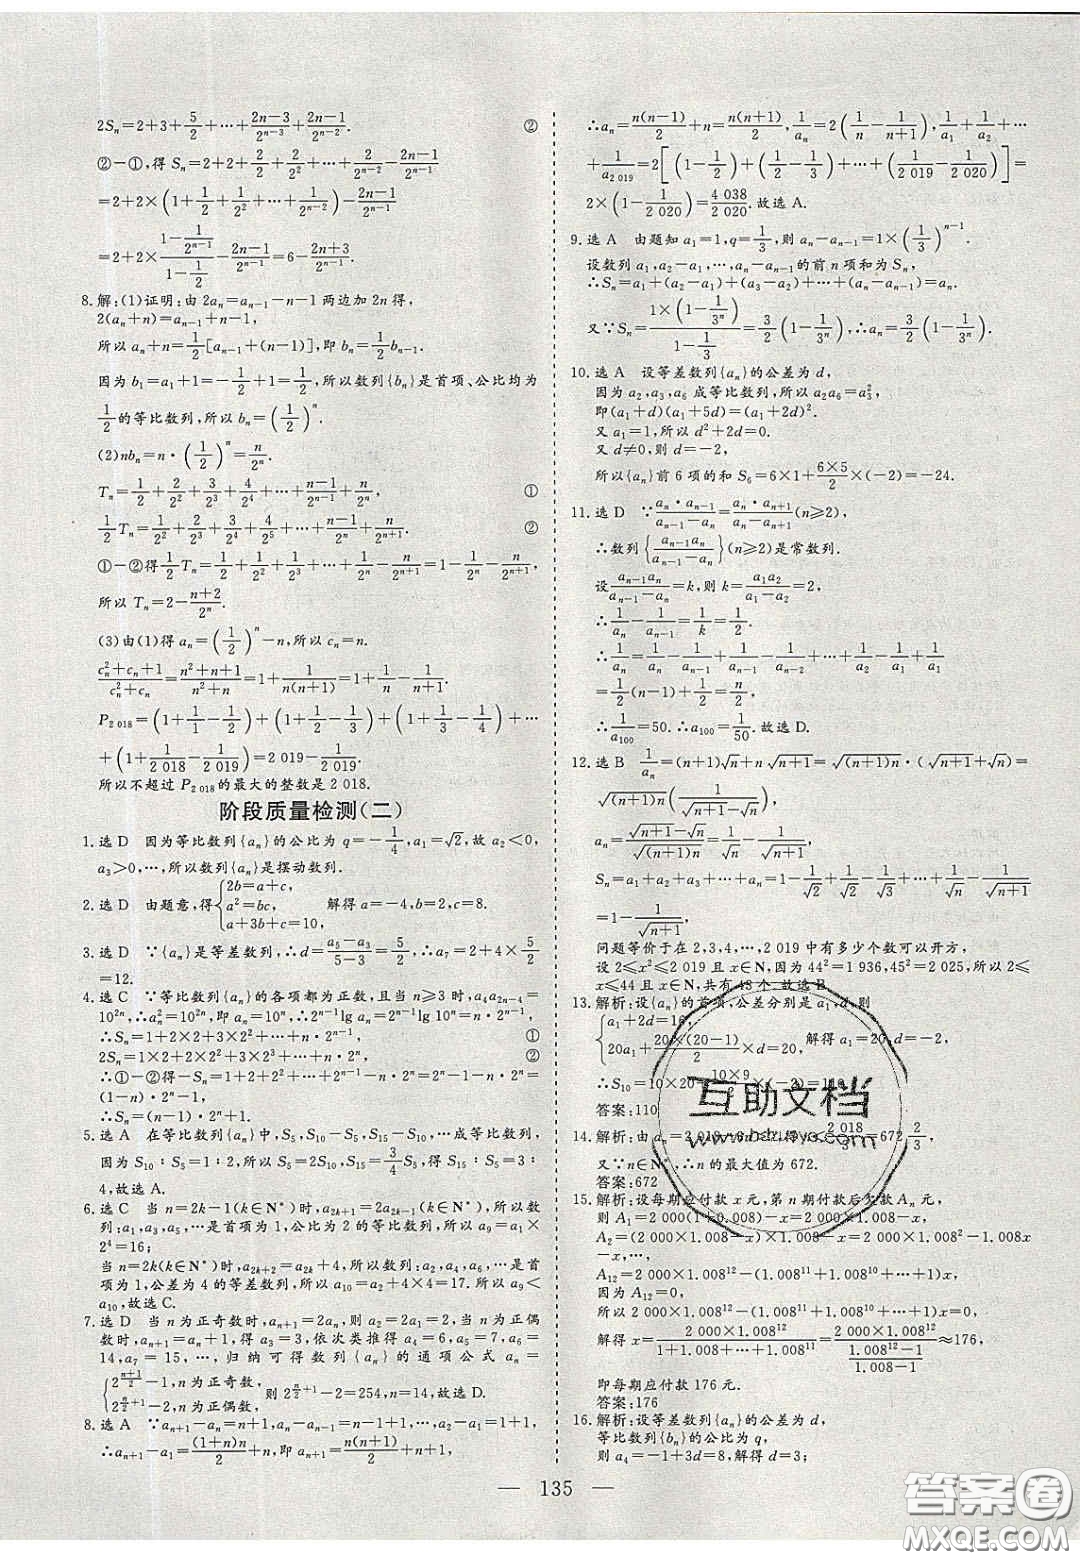 2Sₙ=2+3+5/2+…+(2n−3)/2ⁿ⁻³+(2n−1)/2ⁿ⁻². ②
②−①,得Sₙ=2+2+2/2+2/2²+…+2/2ⁿ⁻²−(2n−1)/2ⁿ⁻¹
=2+2×(1+1/2+1/2²+…+1/2ⁿ⁻²)−(2n−1)/2ⁿ⁻¹
=2+2×(1−1/2ⁿ⁻¹)/(1−1/2)−(2n−1)/2ⁿ⁻¹=6−(2n+3)/2ⁿ⁻¹.
8.解:(1)证明:由2aₙ=aₙ₋₁−n−1两边加2n得,
2(aₙ+n)=aₙ₋₁+n−1,
所以aₙ+n=1/2[aₙ₋₁+(n−1)],即bₙ=1/2bₙ₋₁.
因为b₁=a₁+1=−1/2+1=1/2,所以数列{bₙ}是首项、公比均为
1/2的等比数列,所以bₙ=(1/2)ⁿ.
(2)nbₙ=n·(1/2)ⁿ=n/2ⁿ.
Tₙ=1/2+2/2²+3/2³+4/2⁴+…+(n−1)/2ⁿ⁻¹+n/2ⁿ, ①
1/2Tₙ=1/2²+2/2³+3/2⁴+4/2⁵+…+(n−1)/2ⁿ+n/2ⁿ⁺¹. ②
①−②得1/2Tₙ=1/2+1/2²+1/2³+…+1/2ⁿ−n/2ⁿ⁺¹=1−1/2ⁿ−n/2ⁿ⁺¹,
所以Tₙ=2−(n+2)/2ⁿ.
(3)由(1)得aₙ=(1/2)ⁿ−n,所以cₙ=n.
(cₙ²+cₙ+1)/(cₙ²+cₙ)=(n²+n+1)/(n²+n)=1+1/(n(n+1))=1+1/n−1/(n+1).
P₂ ₀₁₈=(1+1/1−1/2)+(1+1/2−1/3)+(1+1/3−1/4)+…
+(1+1/2 018−1/2 019)=2 019−1/2 019.
所以不超过P₂ ₀₁₈的最大的整数是2 018.
阶段质量检测(二)
1.选D 因为等比数列{aₙ}的公比为q=−1/4,a₁=√2,故a₂<0,
a₃>0,…,所以数列{aₙ}是摆动数列.
2.选D 由题意,得{2b=a+c, a²=bc, a+3b+c=10, 解得a=−4,b=2,c=8.
3.选D ∵{aₙ}是等差数列,∴d=(a₅−a₃)/(5−3)=5/2,∴a₇=2+4×5/2
=12.
4.选C ∵等比数列{aₙ}的各项都为正数,且当n≥3时,a₄a₂ₙ₋₄=
10²ⁿ,∴aₙ²=10²ⁿ,即aₙ=10ⁿ,∴2ⁿ⁻¹lg aₙ=2ⁿ⁻¹lg 10ⁿ=n·2ⁿ⁻¹,
∴Sₙ=1+2×2+3×2²+…+n·2ⁿ⁻¹, ①
2Sₙ=1×2+2×2²+3×2³+…+n·2ⁿ, ②
∴①−②得−Sₙ=1+2+2²+…+2ⁿ⁻¹−n·2ⁿ=2ⁿ−1−n·2ⁿ=
(1−n)·2ⁿ−1,∴Sₙ=(n−1)·2ⁿ+1.
5.选A 在等比数列{aₙ}中,S₅,S₁₀−S₅,S₁₅−S₁₀,…成等比数列,
因为S₁₀∶S₅=1∶2,所以S₅=2S₁₀,S₁₅=3/4S₅,得S₁₅∶S₅=3∶
4,故选A.
6.选C 当n=2k−1(k∈N*)时,a₂ₖ₊₁=2a₂ₖ₋₁(k∈N*),所以数
列:a₁,a₃,a₅,…是首项为1,公比为2的等比数列,所以a₉=1×
2⁴=16;
当n=2k(k∈N*)时,a₂ₖ₊₂=a₂ₖ+4,所以数列:a₂,a₄,a₆,…是首
项为1,公差为4的等差数列,所以a₁₀=a₂+4×4=17.所以a₉<
a₁₀,故选C.
7.选D 当n为正奇数时,aₙ₊₁=2aₙ,所以a₂=2a₁=2,当n为正偶
数时,aₙ₊₁=aₙ+1,得a₃=3,依次类推得a₄=6,a₅=7,a₆=14,
a₇=15,…,归纳可得数列{aₙ}的通项公式aₙ=
{2^((n+1)/2)−1,n为正奇数, 2^(n/2+1)−2,n为正偶数, 则2^(n/2+1)−2=254,n=14,故选D.
8.选A ∵aₙ₊₁−aₙ=n+1,aₙ−aₙ₋₁=n−1+1,…,a₂−a₁=1+1,
∴aₙ₊₁−a₁=((1+n)n)/2+n,即aₙ₊₁=(n(n+1))/2+n+1,
∴aₙ=(n(n−1))/2+n=(n(n+1))/2,1/aₙ=2(1/n−1/(n+1)),1/a₁+1/a₂+…
+1/a₂ ₀₁₉=2[(1−1/2)+(1/2−1/3)+…+(1/2 019−1/2 020)]=
2×(1−1/2 020)=4 038/2 020.故选A.
9.选A 由题知a₁=1,q=1/3,则aₙ−aₙ₋₁=1×(1/3)ⁿ⁻¹.
设数列a₁,a₂−a₁,…,aₙ−aₙ₋₁的前n项和为Sₙ,
∴Sₙ=a₁+(a₂−a₁)+(a₃−a₂)+…+(aₙ−aₙ₋₁)=aₙ.
又∵Sₙ=(1×(1−1/3ⁿ))/(1−1/3)=3/2(1−1/3ⁿ),∴aₙ=3/2(1−1/3ⁿ).
10.选A 设等差数列{aₙ}的公差为d,
因为a₂,a₃,a₆成等比数列,所以a₂a₆=a₃²,
即(a₁+d)(a₁+5d)=(a₁+2d)².
又a₁=1,所以d²+2d=0.
又d≠0,则d=−2,
所以{aₙ}前6项的和S₆=6×1+(6×5)/2×(−2)=−24.
11.选D ∵(aₙ·aₙ₋₁)/(aₙ₋₁−aₙ)=(aₙ·aₙ₊₁)/(aₙ−aₙ₊₁)(n≥2),
∴数列{(aₙ₋₁aₙ)/(aₙ₋₁−aₙ)}(n≥2)是常数列.
设(aₙ₋₁aₙ)/(aₙ₋₁−aₙ)=k,则k=(a₁a₂)/(a₁−a₂)=2,
∴1/aₙ−1/aₙ₋₁=1/k=1/2.
∴1/aₙ=1/aₙ−1/aₙ₋₁+1/aₙ₋₁−1/aₙ₋₂+…+1/a₂−1/a₁+1/a₁
=1/2(n−1)+1/2=n/2,
∴1/a₁₀₀=50.∴a₁₀₀=1/50.故选D.
12.选B 1/aₙ=(n+1)√n+n√(n+1)=√((n+1)n)·(√(n+1)+√n)=
√((n+1)n)(1/(√(n+1)−√n)),
aₙ=(√(n+1)−√n)/√((n+1)n)=1/√n−1/√(n+1),
Sₙ=a₁+a₂+a₃+…+aₙ=1−1/√2+1/√2−1/√3+…+1/√n−1/√(n+1)
=1−1/√(n+1),
问题等价于在2,3,4,…,2 019中有多少个数可以开方,
设2≤x²≤2 019且x∈N,因为44²=1 936,45²=2 025,所以2≤
x≤44且x∈N,共有43个.故选B.
13.解析:设{aₙ}的首项,公差分别是a₁,d,则
{a₁+2d=16, 20a₁+(20×(20−1))/2×d=20, 解得a₁=20,d=−2,
∴S₁₀=10×20+(10×9)/2×(−2)=110.
答案:110
14.解析:由aₙ=2 018−3n>0,得n<2 018/3=672 2/3,
又∵n∈N*,∴n的最大值为672.
答案:672
15.解析:设每期应付款x元,第n期付款后欠款Aₙ元,
则A₁=2 000(1+0.008)−x=2 000×1.008−x,
A₂=(2 000×1.008−x)×1.008−x=2 000×1.008²−1.008x−x,
…,
A₁₂=2 000×1.008¹²−(1.008¹¹+1.008¹⁰+…+1)x,
因为A₁₂=0,
所以2 000×1.008¹²−(1.008¹¹+1.008¹⁰+…+1)x=0,
解得x=(2 000×1.008¹²)/(1+1.008+…+1.008¹¹)=(2 000×1.008¹²)/((1.008¹²−1)/(1.008−1))≈176,
即每期应付款176元.
答案:176
16.解析:设等差数列{aₙ}的公差为d,
等比数列{bₙ}的公比为q,
则a₄=−1+3d=8,解得d=3;
— 135 —
互助文档
答案圈
MXQE.COM